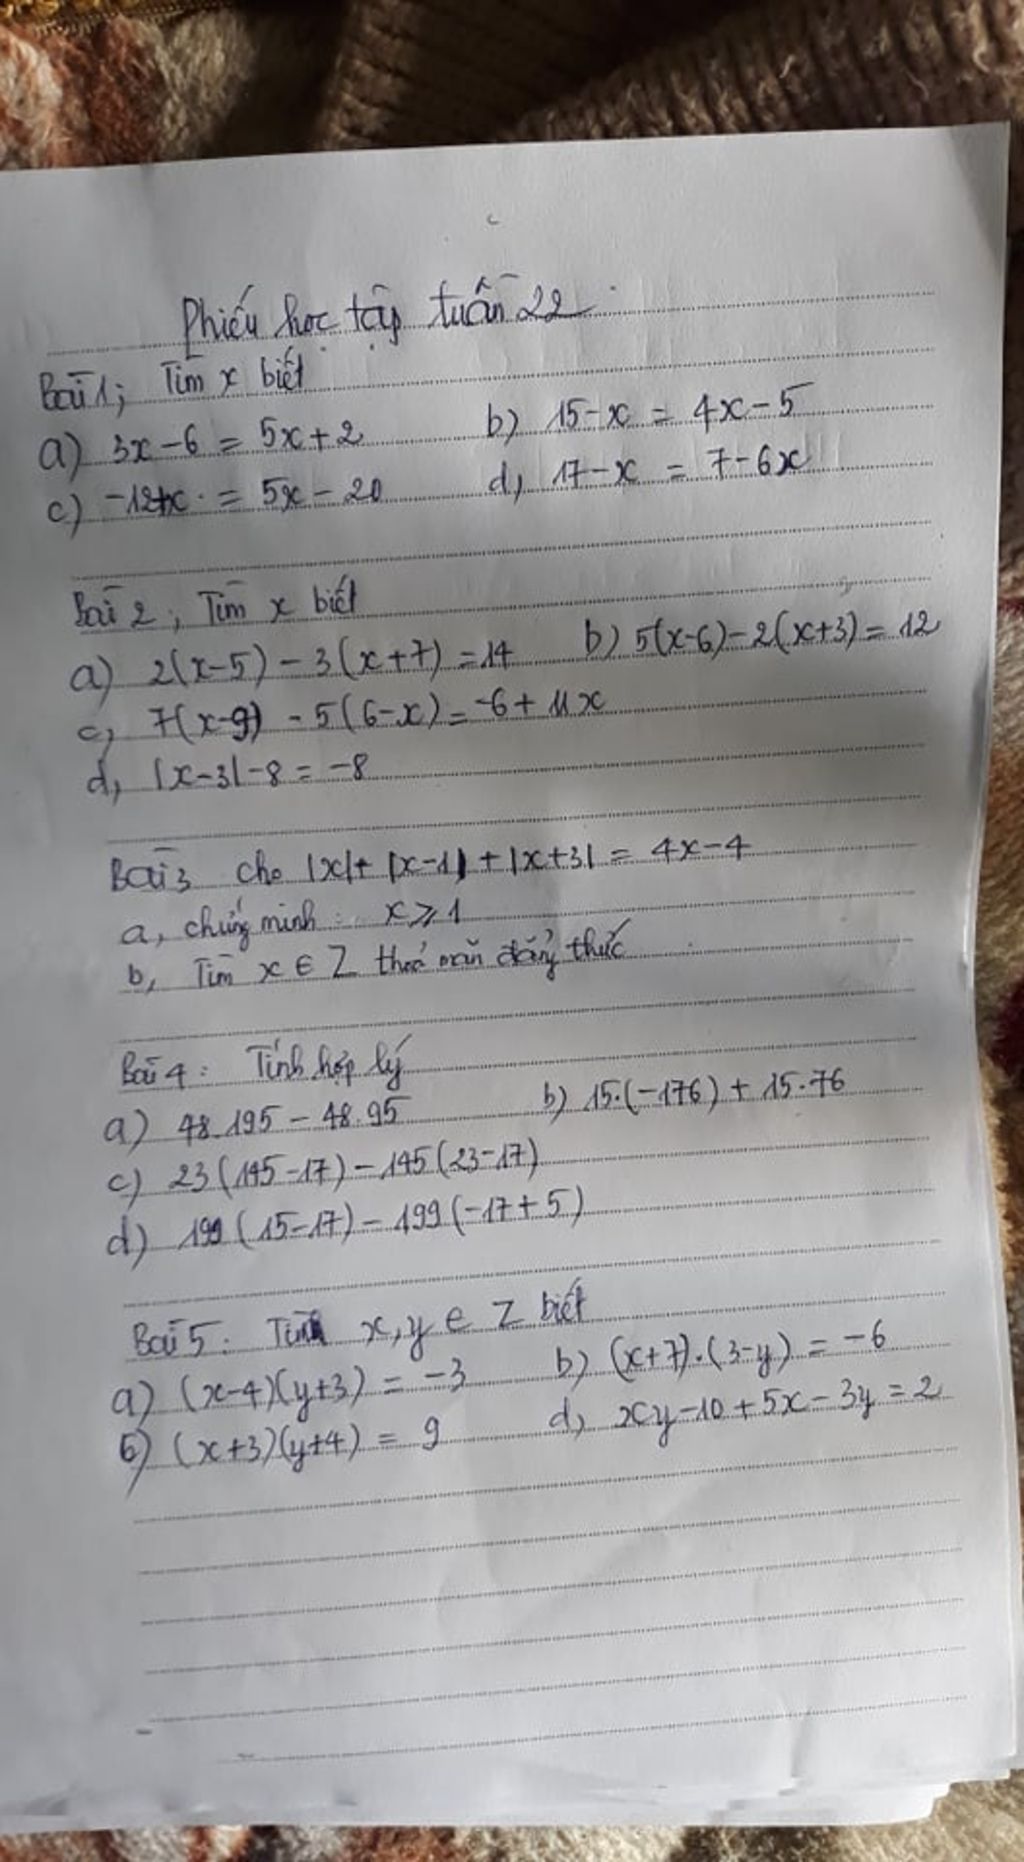 Phiếu học tập tuần 22
Bài 1; Tìm x biết
a) 3x-6 = 5x+2 b) 15-x = 4x-5
c) -12+x = 5x-20 d, 17-x = 7-6x
Bài 2, Tìm x biết
a) 2(x-5) - 3(x+7) = 14 b) 5(x-6)-2(x+3) = 12
c, 7(x-9) - 5(6-x) = -6 + 11x
d, |x-3|-8 = -8
Bài 3 cho |x|+ |x-1| + |x+3| = 4x-4
a, chứng minh: x ⩾ 1
b, Tìm x ∈ Z thoả mãn đẳng thức
Bài 4: Tính hợp lý
a) 48.195 - 48.95 b) 15.(-176) + 15.76
c) 23(145-17) - 145(23-17)
d) 199(15-17) - 199(-17+5)
Bài 5: Tìm x,y ∈ Z biết
a) (x-4)(y+3) = -3 b) (x+7).(3-y) = -6
6) (x+3)(y+4) = 9 d, xy-10+5x-3y = 2